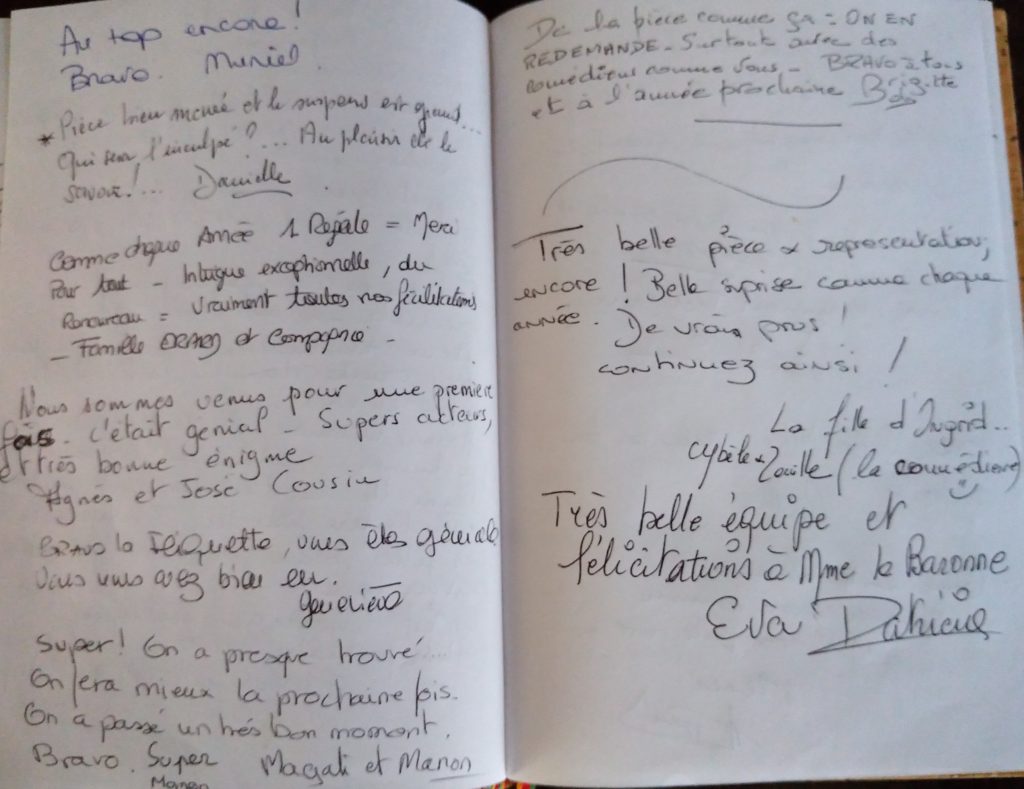 Au top encore!
Bravo. Muriel.
* Pièce bien menée et le suspens est grand...
Qui sera l'inculpé?... Au plaisir de le
savoir!... Danielle
Comme chaque Année 1 Régale = Merci
Pour tout - Intrigue exceptionnelle, du
Renouveau = vraiment toutes nos félicitations
- Famille et Compagnie -
Nous sommes venus pour une première
fois. c'était génial - Supers acteurs,
et très bonne énigme
Agnès et José Cousin
BRAVO la, vous êtes géniale
Vous nous avez bien eu.
Geneviève
Super! On a presque trouvé...
On fera mieux la prochaine fois.
On a passé un très bon moment.
Bravo. Super Magali et Manon
Manon
De la pièce comme ça = ON EN
REDEMANDE - Surtout avec des
comédiens comme vous - BRAVO à tous
et à l'année prochaine Brigitte
Très belle pièce & representation,
encore! Belle suprise comme chaque
année. De vrais pros!
continuez ainsi!
La fille d'Ingrid..
Cybèle (la comédienne)
Très belle équipe et
félicitations à Mme la Baronne
Eva